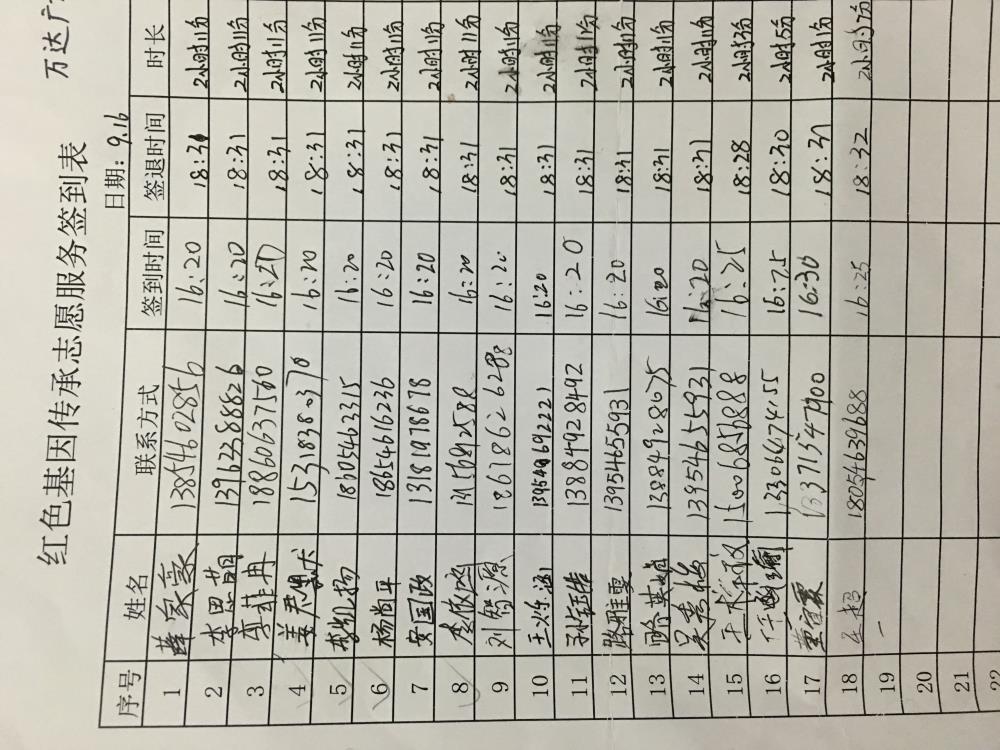 红色基因传承志愿服务签到表 万达广
日期：9.16
序号 姓名 联系方式 签到时间 签退时间 时长
1 薛家豪 13854602856 16:20 18:31 2小时11分
2 李思萌 13962388826 16:20 18:31 2小时11分
3 李菲冉 18860637560 16:20 18:31 2小时11分
4 15318380370 16:20 18:31 2小时11分
5 李凯扬 18605463315 16:20 18:31 2小时11分
6 杨尚平 18654616236 16:20 18:31 2小时11分
7 安国政 13181978678 16:20 18:31 2小时11分
8 16:20 18:31 2小时11分
9 刘智源 16:20 18:31 2小时11分
10 王炳涵 16:20 18:31 2小时11分
11 13884928492 16:20 18:31 2小时11分
12 路雅雯 13954655931 16:20 18:31 2小时11分
13 13884928675 16:20 18:31 2小时11分
14 吴秀梅 13954655931 16:20 18:31 2小时11分
15 15006856888 16:25 18:28 2小时3分
16 16:25 18:30 2小时5分
17 13371547900 16:30 18:31 2小时1分
18 18054639688 16:25 18:32 2小时7分
19
20
21
22